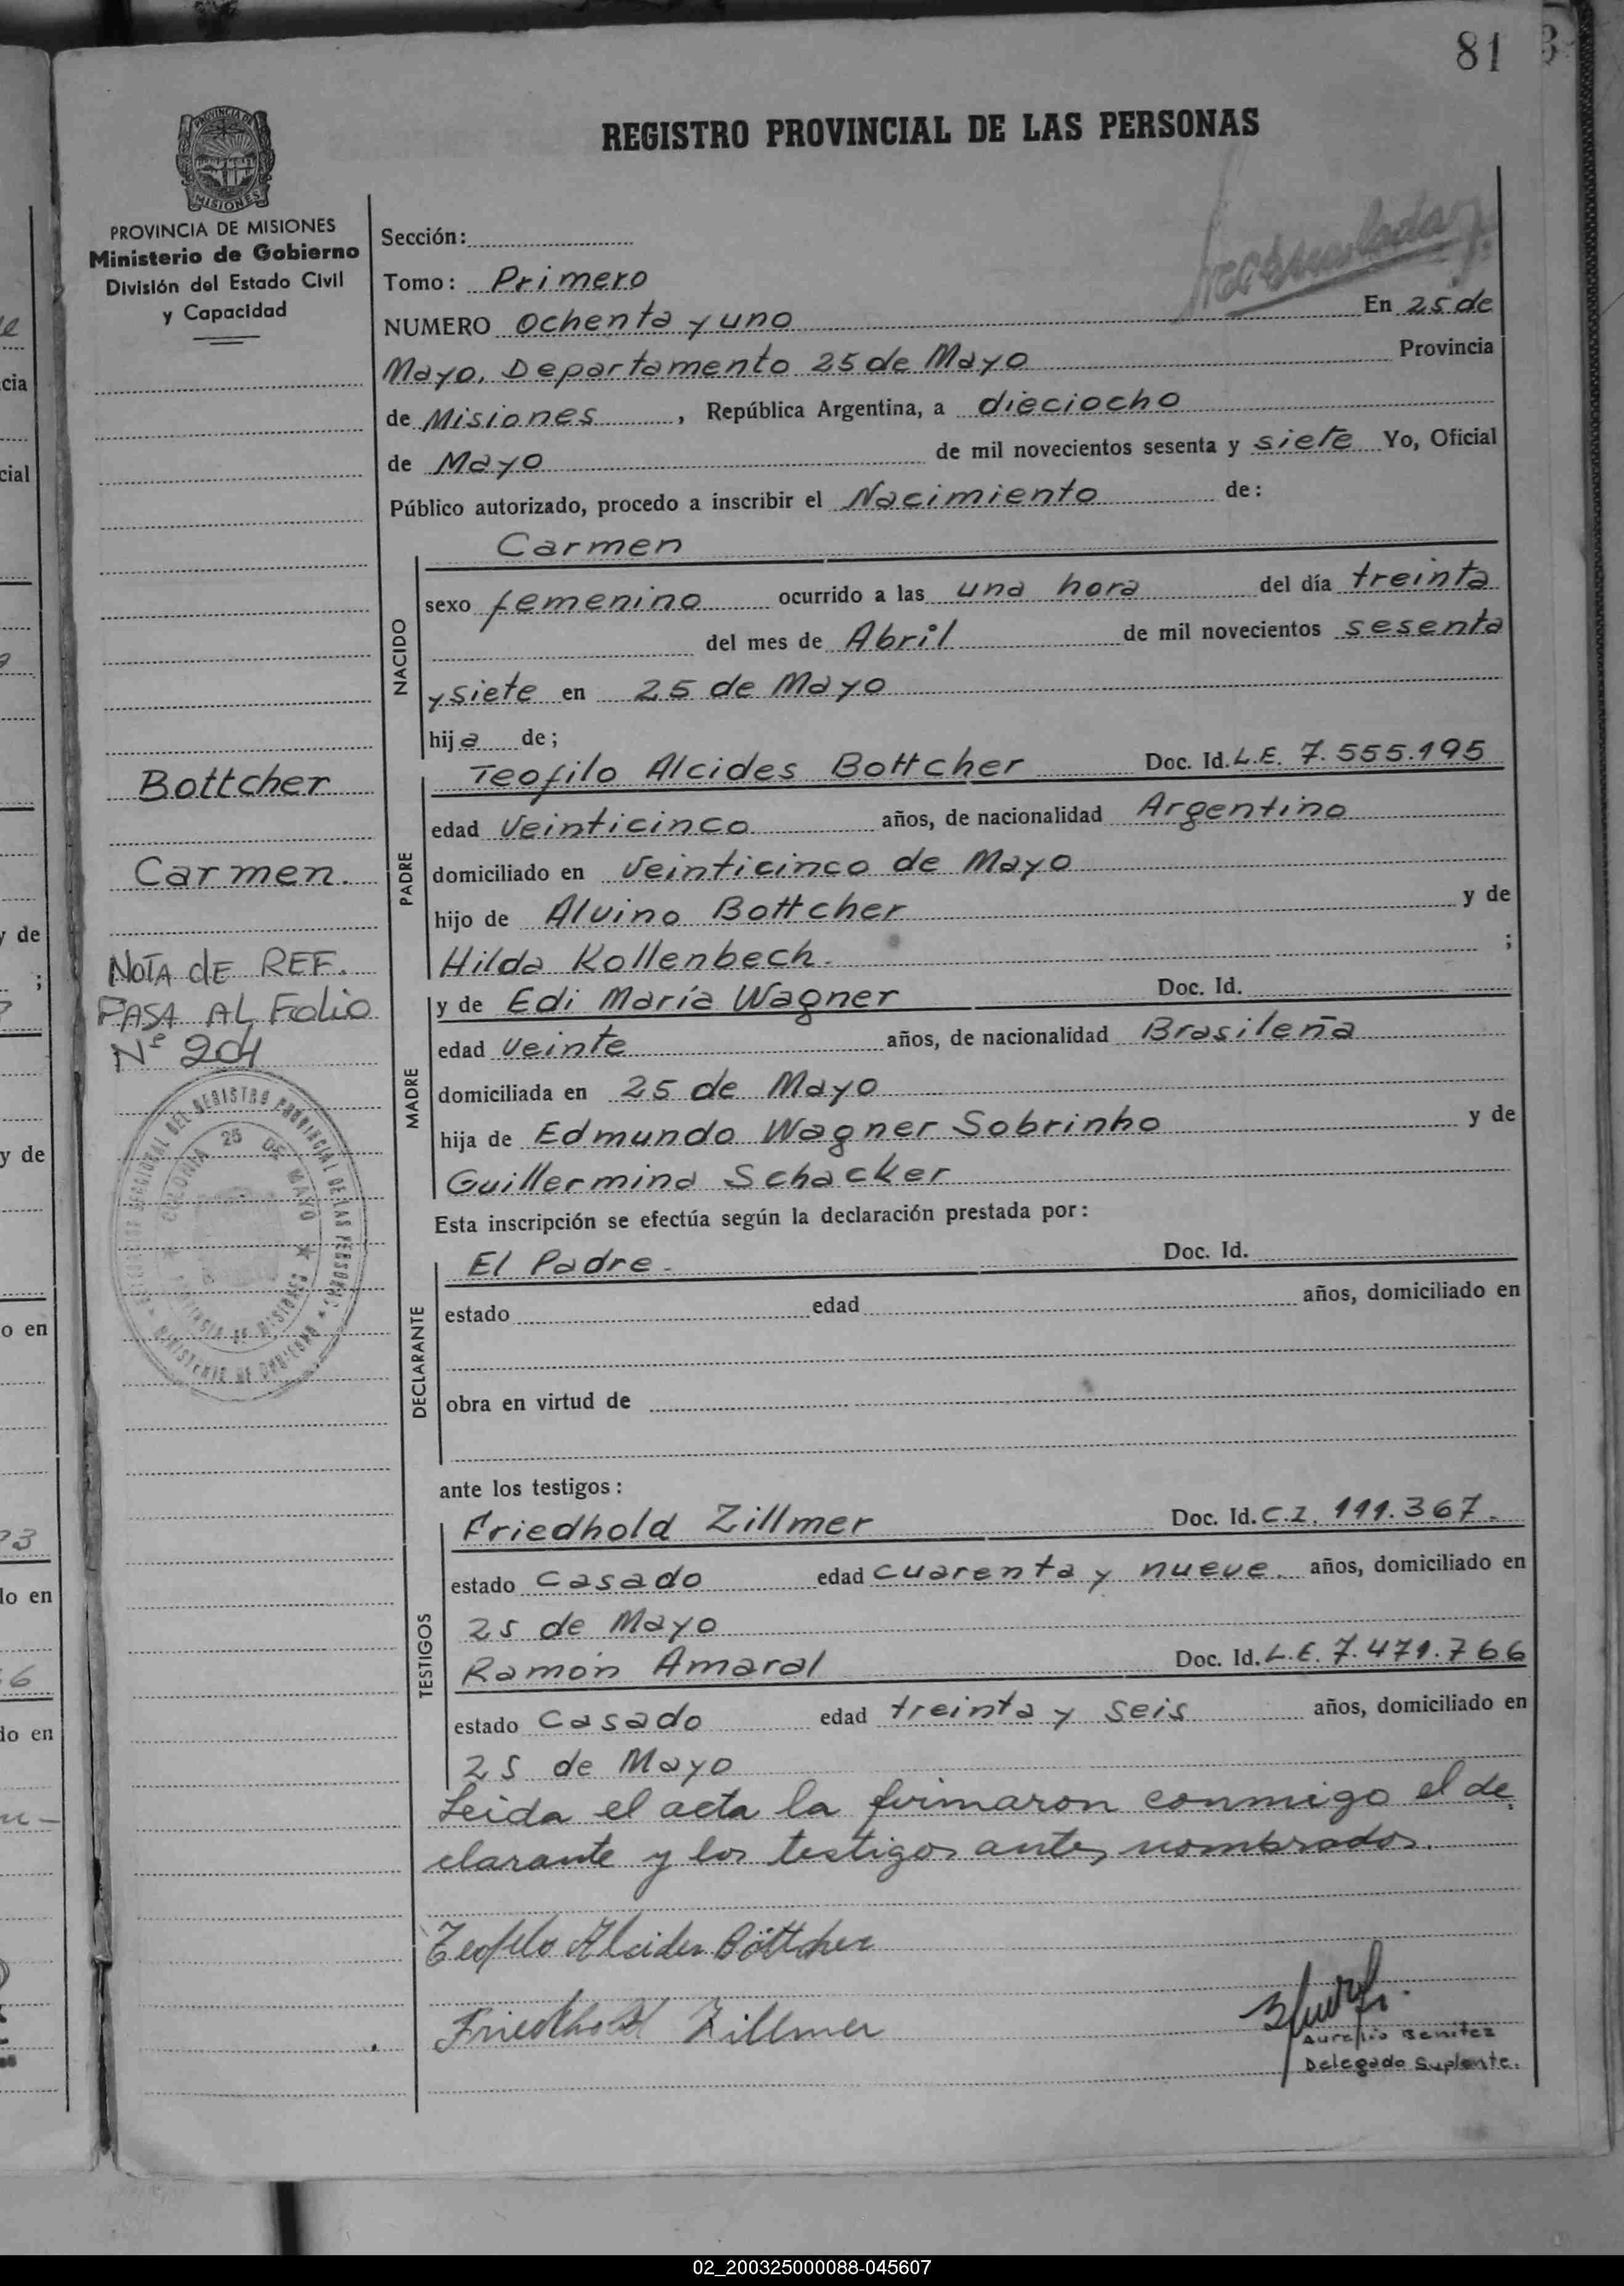 81
REGISTRO PROVINCIAL DE LAS PERSONAS
PROVINCIA DE MISIONES
Ministerio de Gobierno
División del Estado Civil
y Capacidad
Bottcher
Carmen.
NOTA dE REF.
PASA AL Folio
Nº 204
COLONIA 25 DE MAYO
PROVINCIA DE MISIONES
MINISTERIO DE GOBIERNO
Sección:
Tomo: Primero
NUMERO Ochenta y uno En 25 de
Mayo, Departamento 25 de Mayo Provincia
de Misiones, República Argentina, a dieciocho
de Mayo de mil novecientos sesenta y siete Yo, Oficial
Público autorizado, procedo a inscribir el Nacimiento de:
Carmen
NACIDO
sexo femenino ocurrido a las una hora del día treinta
del mes de Abril de mil novecientos sesenta
y siete en 25 de Mayo
hija de;
PADRE
Teofilo Alcides Bottcher Doc. Id. L.E. 7.555.195
edad veinticinco años, de nacionalidad Argentino
domiciliado en veinticinco de Mayo
hijo de Alvino Bottcher y de
Hilda Kollenbech. ;
MADRE
y de Edi María Wagner Doc. Id.
edad veinte años, de nacionalidad Brasileña
domiciliada en 25 de Mayo
hija de Edmundo Wagner Sobrinho y de
Guillermina Schacker
Esta inscripción se efectúa según la declaración prestada por:
DECLARANTE
El Padre - Doc. Id.
estado edad años, domiciliado en
obra en virtud de
ante los testigos:
TESTIGOS
Friedhold Zillmer Doc. Id. C.I. 111.367.
estado casado edad cuarenta y nueve. años, domiciliado en
25 de Mayo
Ramón Amaral Doc. Id. L.E. 7.471.766
estado casado edad treinta y seis años, domiciliado en
25 de Mayo
Leida el acta la firmaron conmigo el de
clarante y los testigos antes nombrados.
Teofilo Alcides Böttcher
Friedhold Zillmer
Aurelio Benitez
Delegado Suplente.
02_200325000088-045607